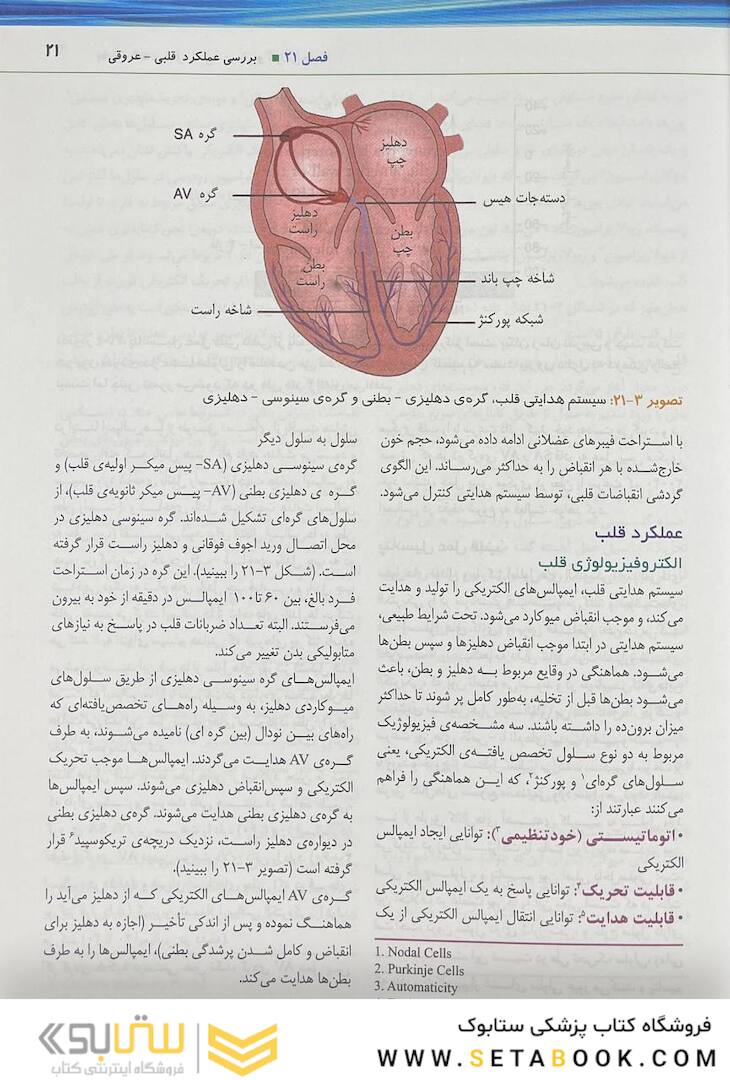 فصل ۲۱ ■ بررسی عملکرد قلبی - عروقی
۲۱
گره SA
گره AV
دهلیز
چپ
دهلیز
راست
بطن
چپ
بطن
راست
دسته‌جات هیس
شاخه چپ باند
شبکه پورکنژ
شاخه راست
تصویر ۳-۲۱: سیستم هدایتی قلب، گره‌ی دهلیزی - بطنی و گره‌ی سینوسی - دهلیزی
با استراحت فیبرهای عضلانی ادامه داده می‌شود، حجم خون
خارج‌شده با هر انقباض را به حداکثر می‌رساند. این الگوی
گردشی انقباضات قلبی، توسط سیستم هدایتی کنترل می‌شود.
عملکرد قلب
الکتروفیزیولوژی قلب
سیستم هدایتی قلب، ایمپالس‌های الکتریکی را تولید و هدایت
می‌کند، و موجب انقباض میوکارد می‌شود. تحت شرایط طبیعی،
سیستم هدایتی در ابتدا موجب انقباض دهلیزها و سپس بطن‌ها
می‌شود. هماهنگی در وقایع مربوط به دهلیز و بطن، باعث
می‌شود بطن‌ها قبل از تخلیه، به‌طور کامل پر شوند تا حداکثر
میزان برون‌ده را داشته باشند. سه مشخصه‌ی فیزیولوژیک
مربوط به دو نوع سلول تخصص یافته‌ی الکتریکی، یعنی
سلول‌های گره‌ای۱ و پورکنژ۲، که این هماهنگی را فراهم
می‌کنند عبارتند از:
• اتوماتیستی (خودتنظیمی۳): توانایی ایجاد ایمپالس
الکتریکی
• قابلیت تحریک۴: توانایی پاسخ به یک ایمپالس الکتریکی
• قابلیت هدایت۵: توانایی انتقال ایمپالس الکتریکی از یک
1. Nodal Cells
2. Purkinje Cells
3. Automaticity
سلول به سلول دیگر
گره‌ی سینوسی دهلیزی (SA- پیس میکر اولیه‌ی قلب) و
گره ی دهلیزی بطنی (AV- پیس میکر ثانویه‌ی قلب)، از
سلول‌های گره‌ای تشکیل شده‌اند. گره سینوسی دهلیزی در
محل اتصال ورید اجوف فوقانی و دهلیز راست قرار گرفته
است. (شکل ۳-۲۱ را ببینید). این گره در زمان استراحت
فرد بالغ، بین ۶۰ تا ۱۰۰ ایمپالس در دقیقه از خود به بیرون
می‌فرستند. البته تعداد ضربانات قلب در پاسخ به نیازهای
متابولیکی بدن تغییر می‌کند.
ایمپالس‌های گره سینوسی دهلیزی از طریق سلول‌های
میوکاردی دهلیز، به وسیله راه‌های تخصص‌یافته‌ای که
راه‌های بین نودال (بین گره ای) نامیده می‌شوند، به طرف
گره‌ی AV هدایت می‌گردند. ایمپالس‌ها موجب تحریک
الکتریکی و سپس‌انقباض دهلیزی می‌شوند. سپس ایمپالس‌ها
به گره‌ی دهلیزی بطنی هدایت می‌شوند. گره‌ی دهلیزی بطنی
در دیواره‌ی دهلیز راست، نزدیک دریچه‌ی تریکوسپید۶ قرار
گرفته است (تصویر ۳-۲۱ را ببینید).
گره‌ی AV ایمپالس‌های الکتریکی که از دهلیز می‌آید را
هماهنگ نموده و پس از اندکی تأخیر (اجازه به دهلیز برای
انقباض و کامل شدن پرشدگی بطنی)، ایمپالس‌ها را به طرف
بطن‌ها هدایت می‌کند.
فروشگاه کتاب پزشکی ستابوک
WWW.SETABOOK.COM
ستابوک
فروشگاه اینترنتی کتاب